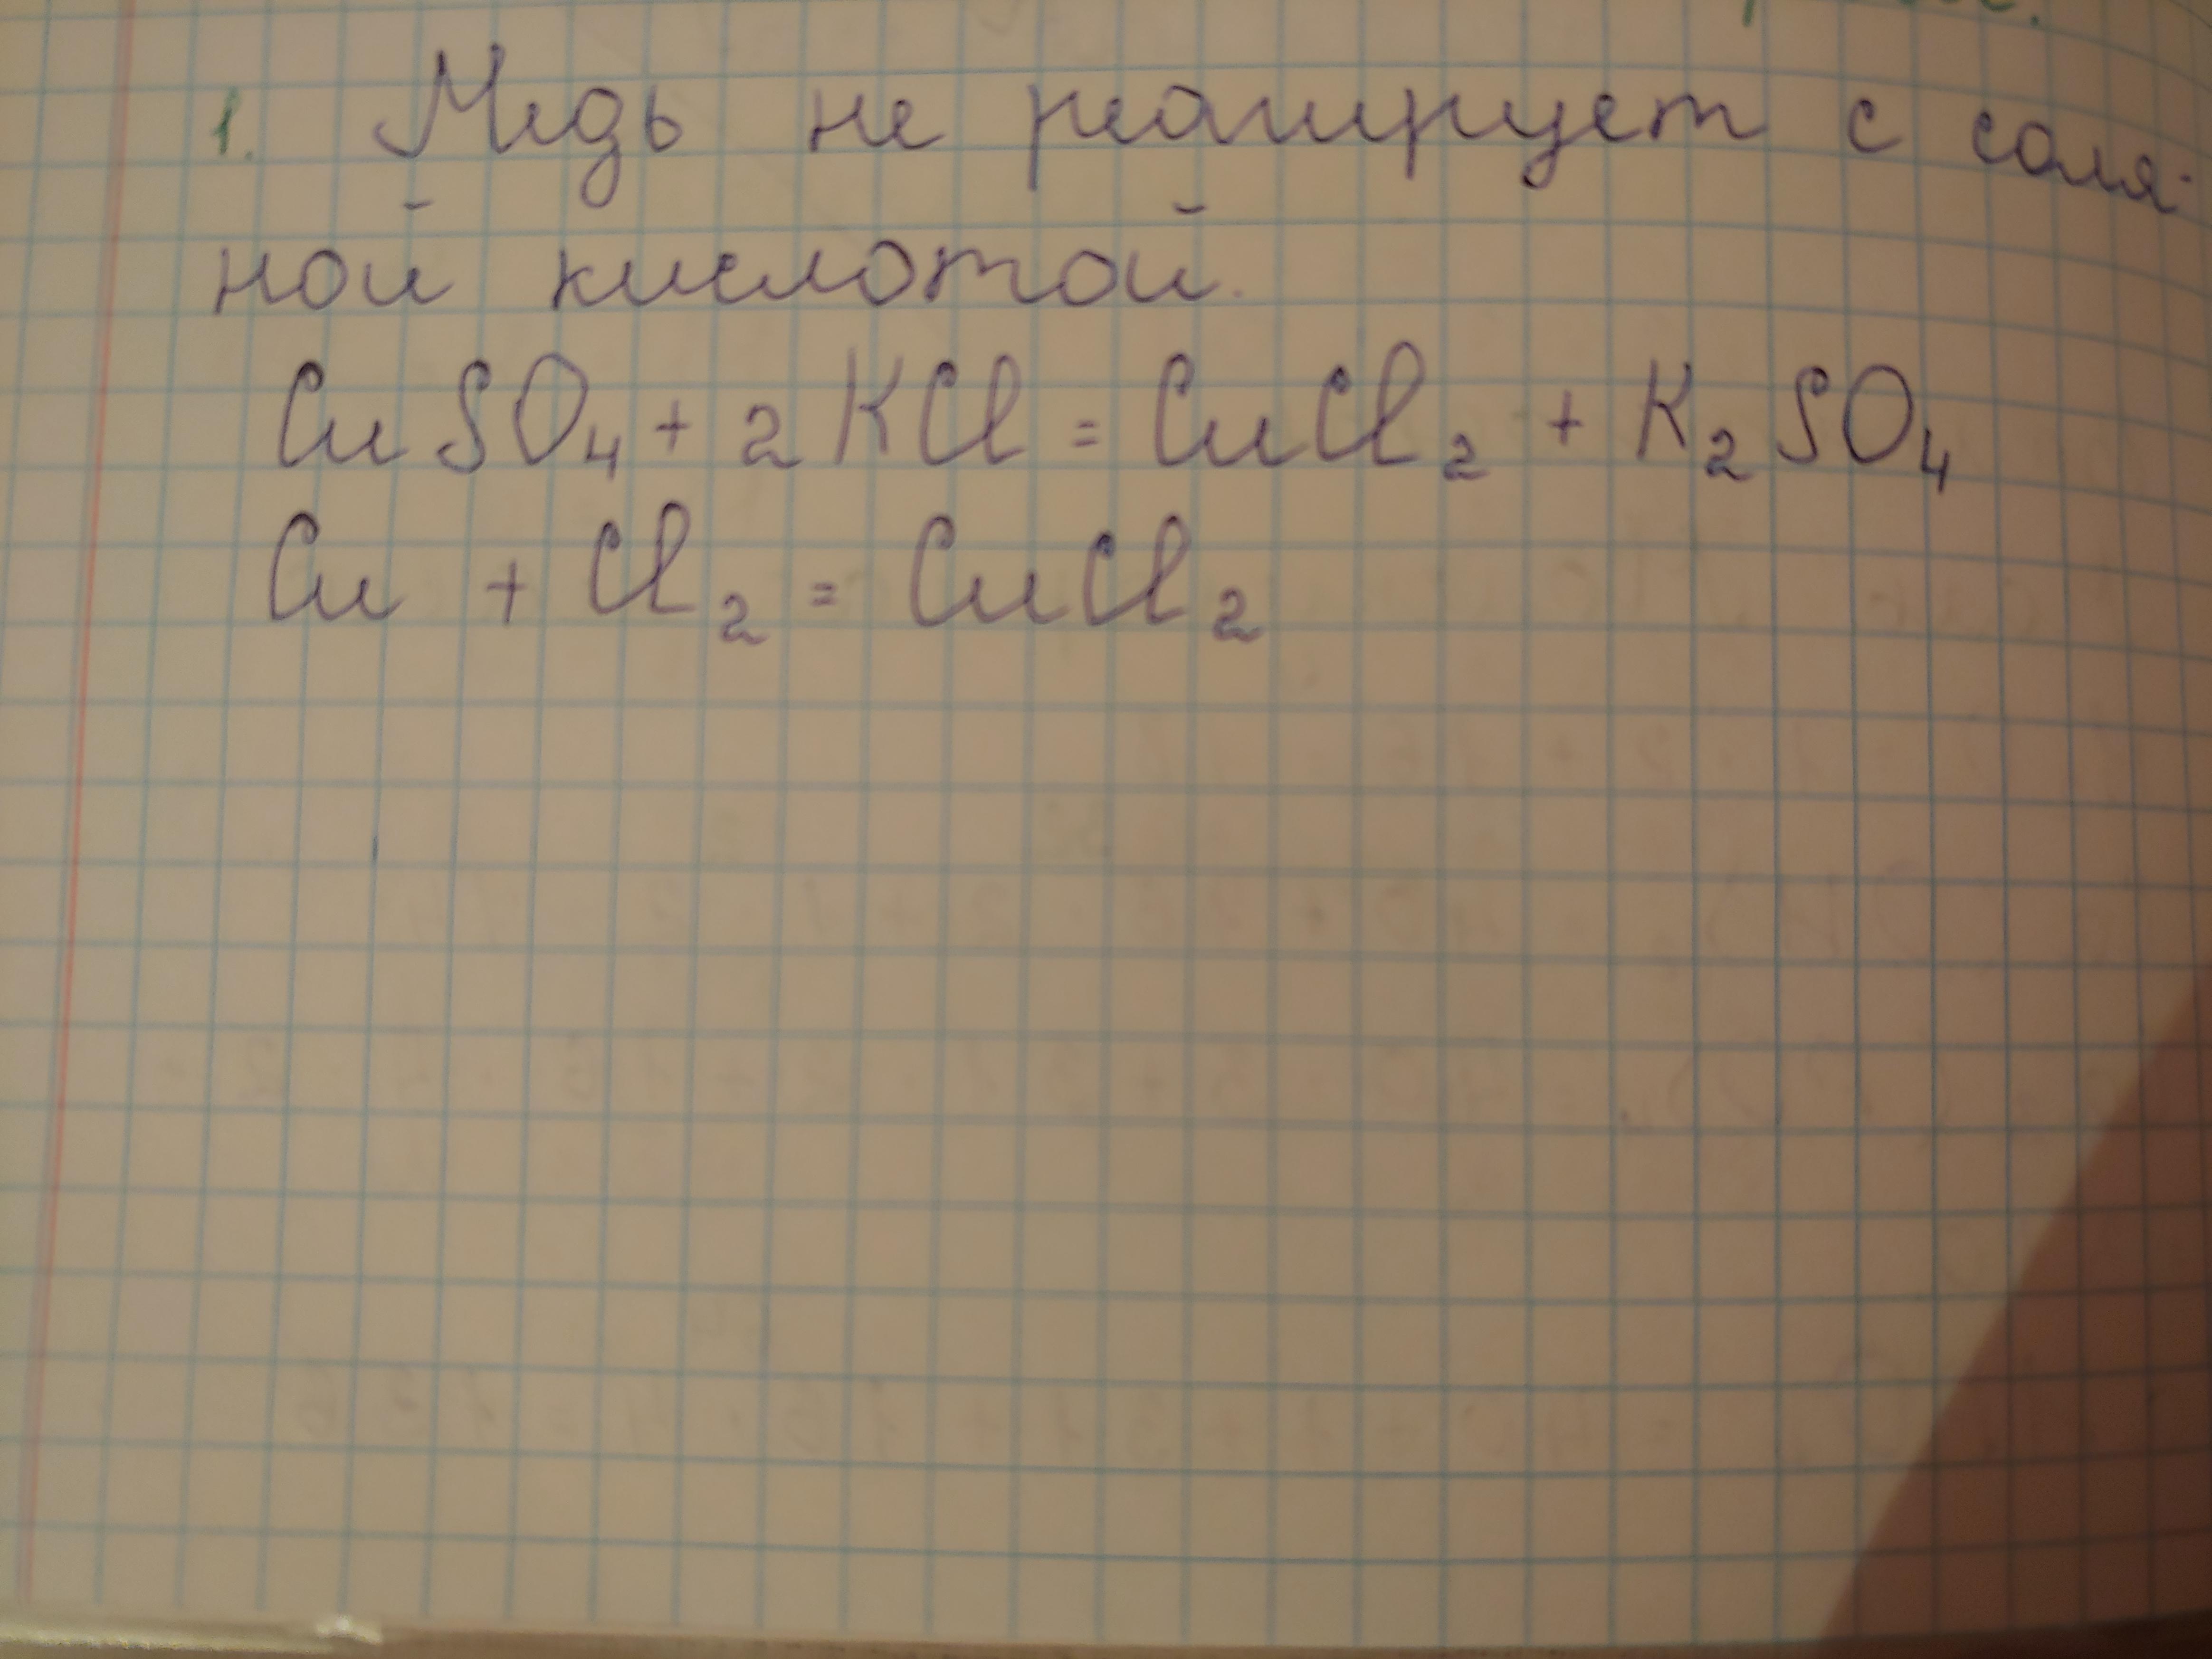 1. Медь не реагирует с соля-
ной кислотой.
CuSO₄ + 2KCl = CuCl₂ + K₂SO₄
Cu + Cl₂ = CuCl₂